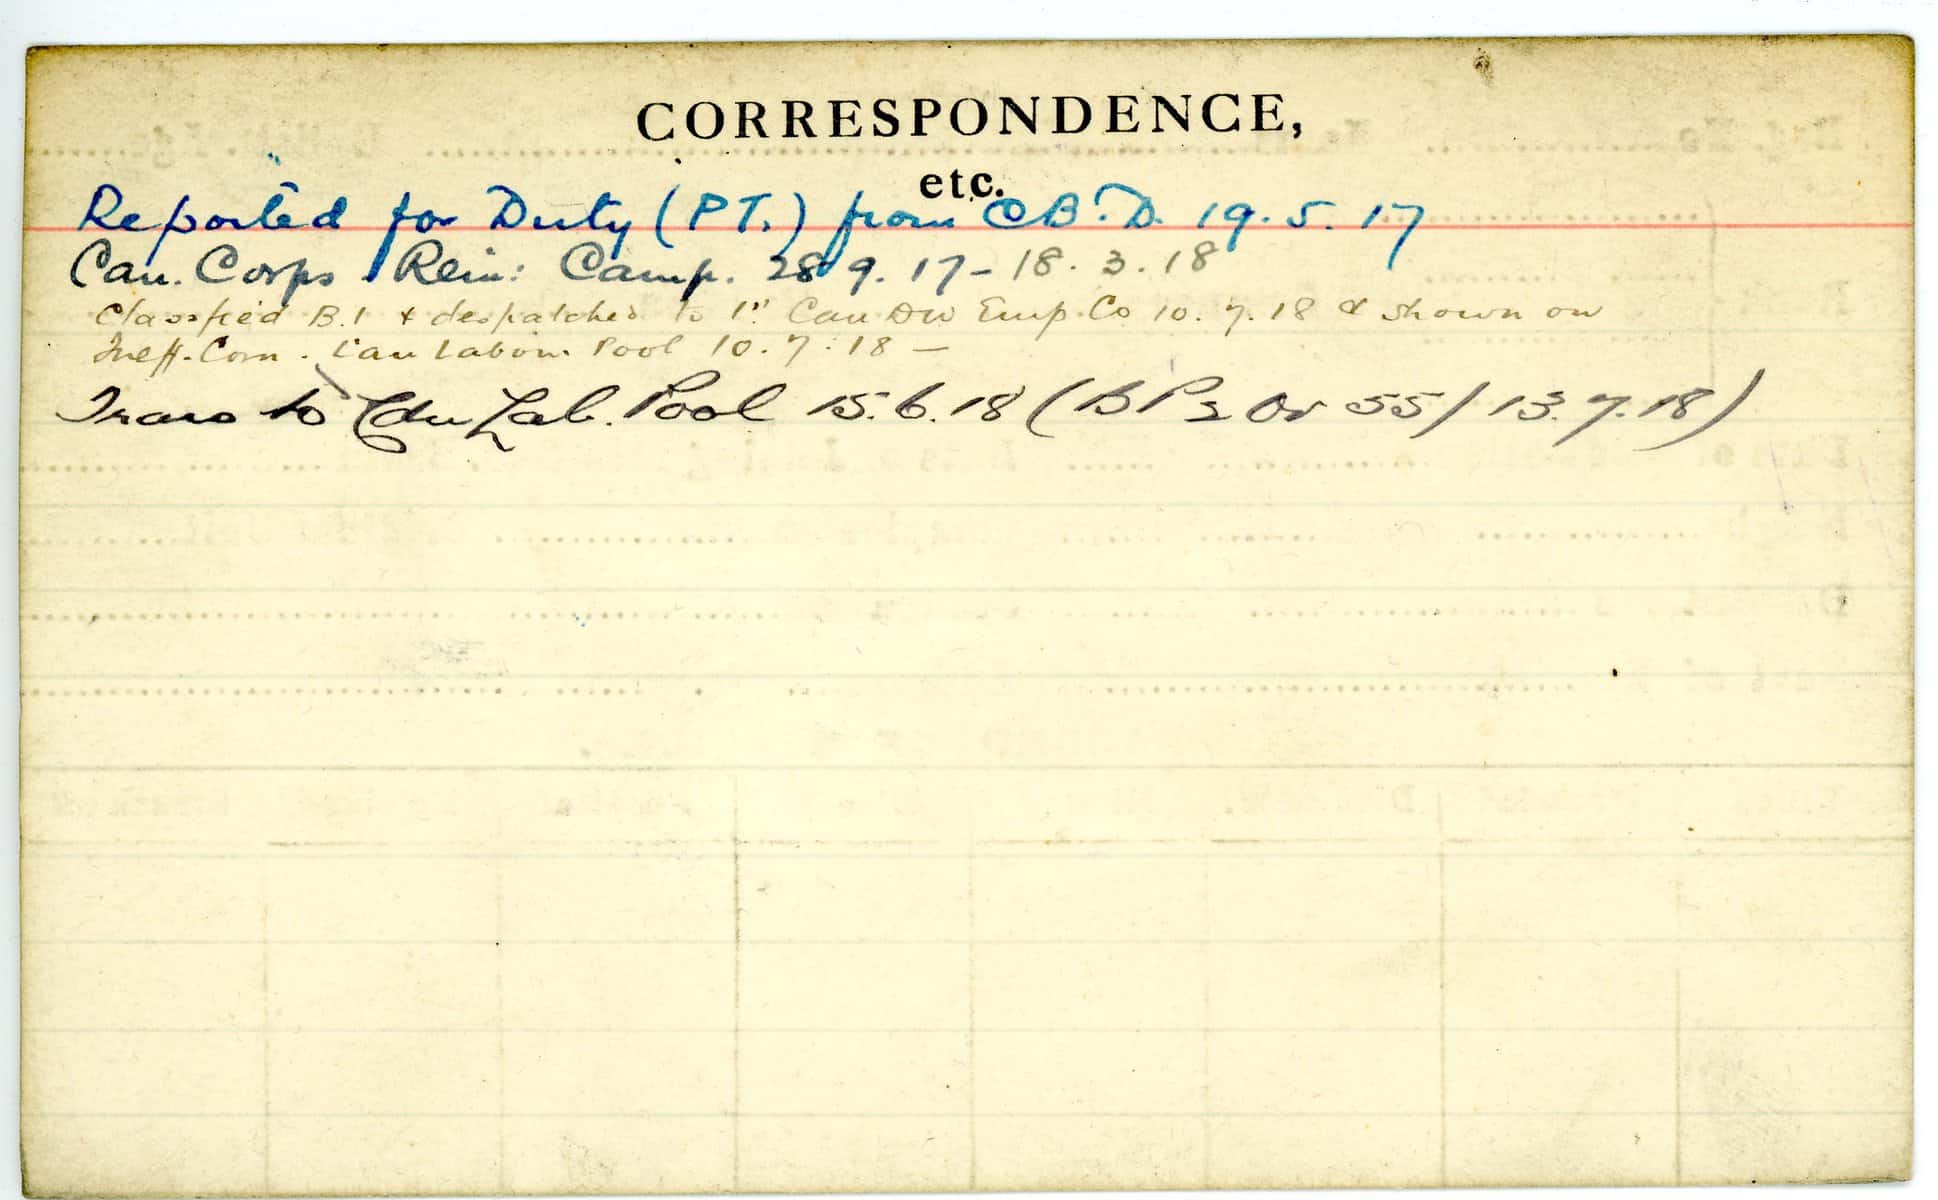 CORRESPONDENCE,
etc.
Reported for Duty (P.T.) from C.B.D. 19.5.17
Can. Corps Rein: Camp. 28.9.17 - 18.3.18
Classified B.1 & despatched to 1st Can Div Emp. Co 10.7.18 & shown on
Ineff. Can Labour Pool 10.7.18 —
Trans to Cdn Lab. Pool 15.6.18 (B P2 Or 55/13.7.18)